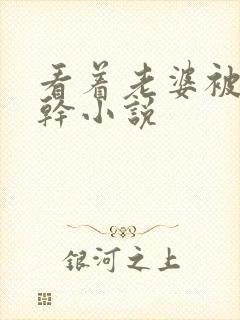 看着老婆被
幹小説
银河之上